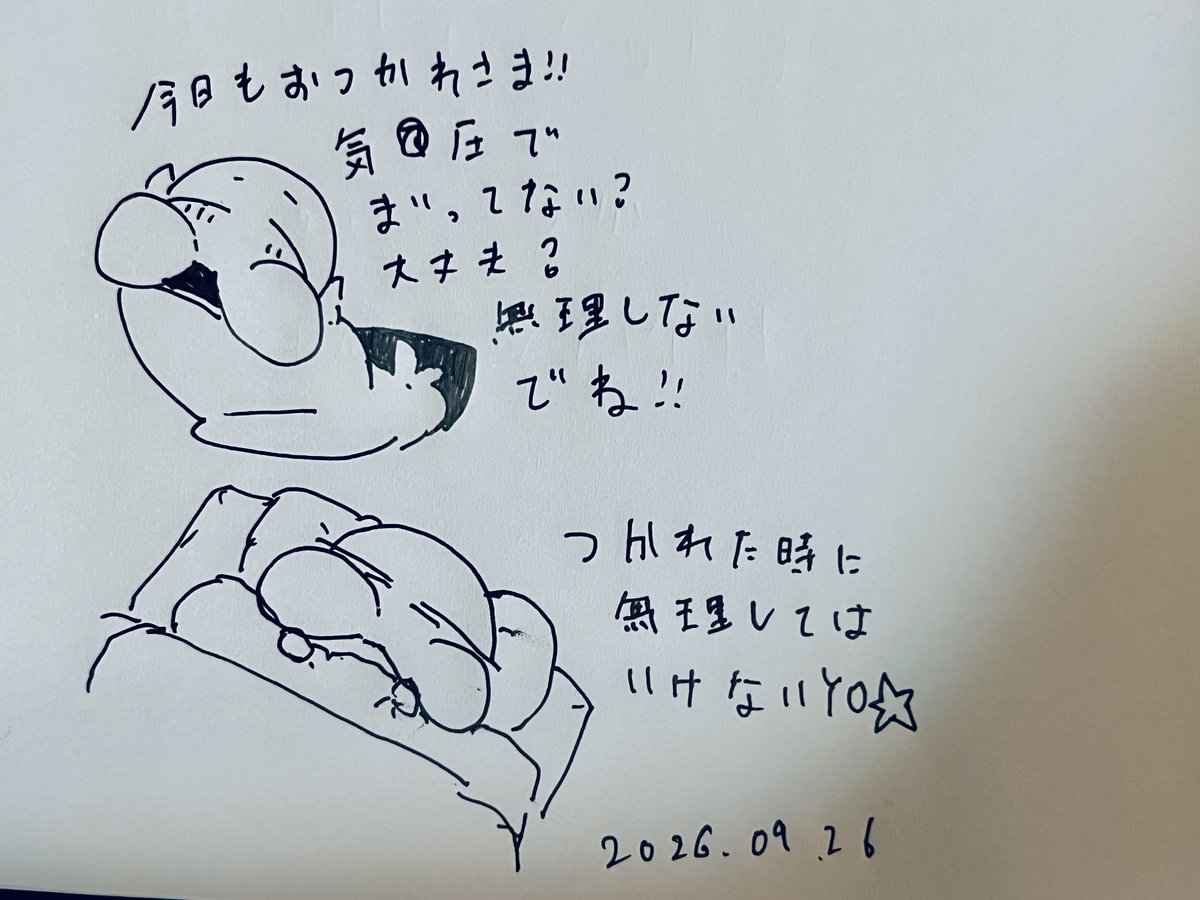 今日もおつかれさま!!
気圧で
まいってない?
大丈夫?
無理しない
でね!!
つかれた時に
無理しては
いけないYO☆
2026.09.26